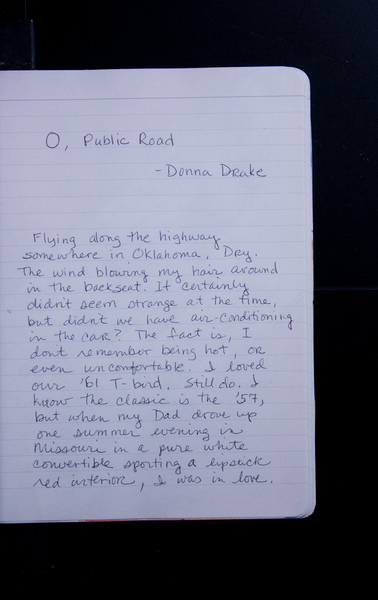 O, Public Road
- Donna Drake
Flying along the highway
somewhere in Oklahoma, Dry.
The wind blowing my hair around
in the backseat. It certainly
didn't seem strange at the time,
but didn't we have air-conditioning
in the car? The fact is, I
don't remember being hot, or
even uncomfortable. I loved
our '61 T-bird. Still do. I
know the classic is the '57,
but when my Dad drove up
one summer evening in
Missouri in a pure white
convertible sporting a lipstick
red interior, I was in love.